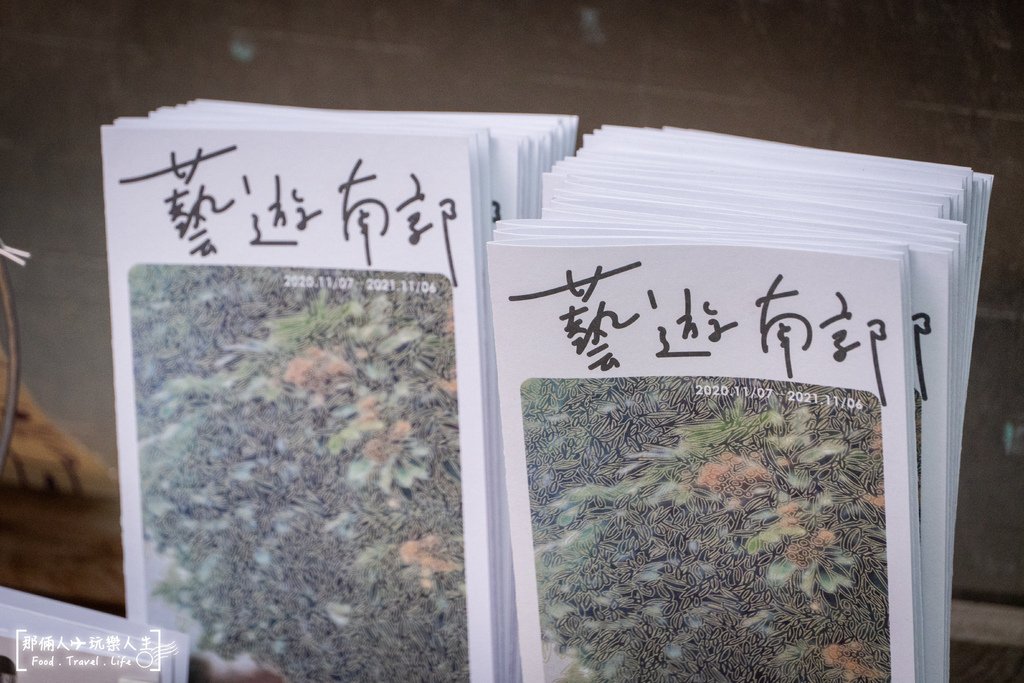 藝遊南郭
2020.11/07 - 2021.11/06
藝遊南郭
2020.11/07 - 2021.11/06
那倆人玩樂人生
Food . Travel . Life